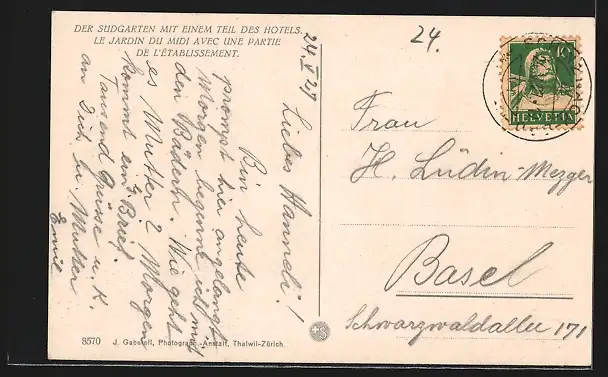 DER SÜDGARTEN MIT EINEM TEIL DES HOTELS.
LE JARDIN DU MIDI AVEC UNE PARTIE
DE L'ÉTABLISSEMENT.
24. V. 27
Liebes Hanneli!
Bin heute
prompt hier angelangt
Morgen beginne ich mit
den Bädern. Wie geht
es Mutter? Morgen
kommt ein Brief.
Tausend Grüsse u. K.
an Dich u. Mutter
Emil
24.
10
HELVETIA
Frau
H. Lüdin-Mezger
Basel
Schwarzwaldallee 171
8570 J. Gaberell, Photograph.-Anstalt, Thalwil-Zürich.